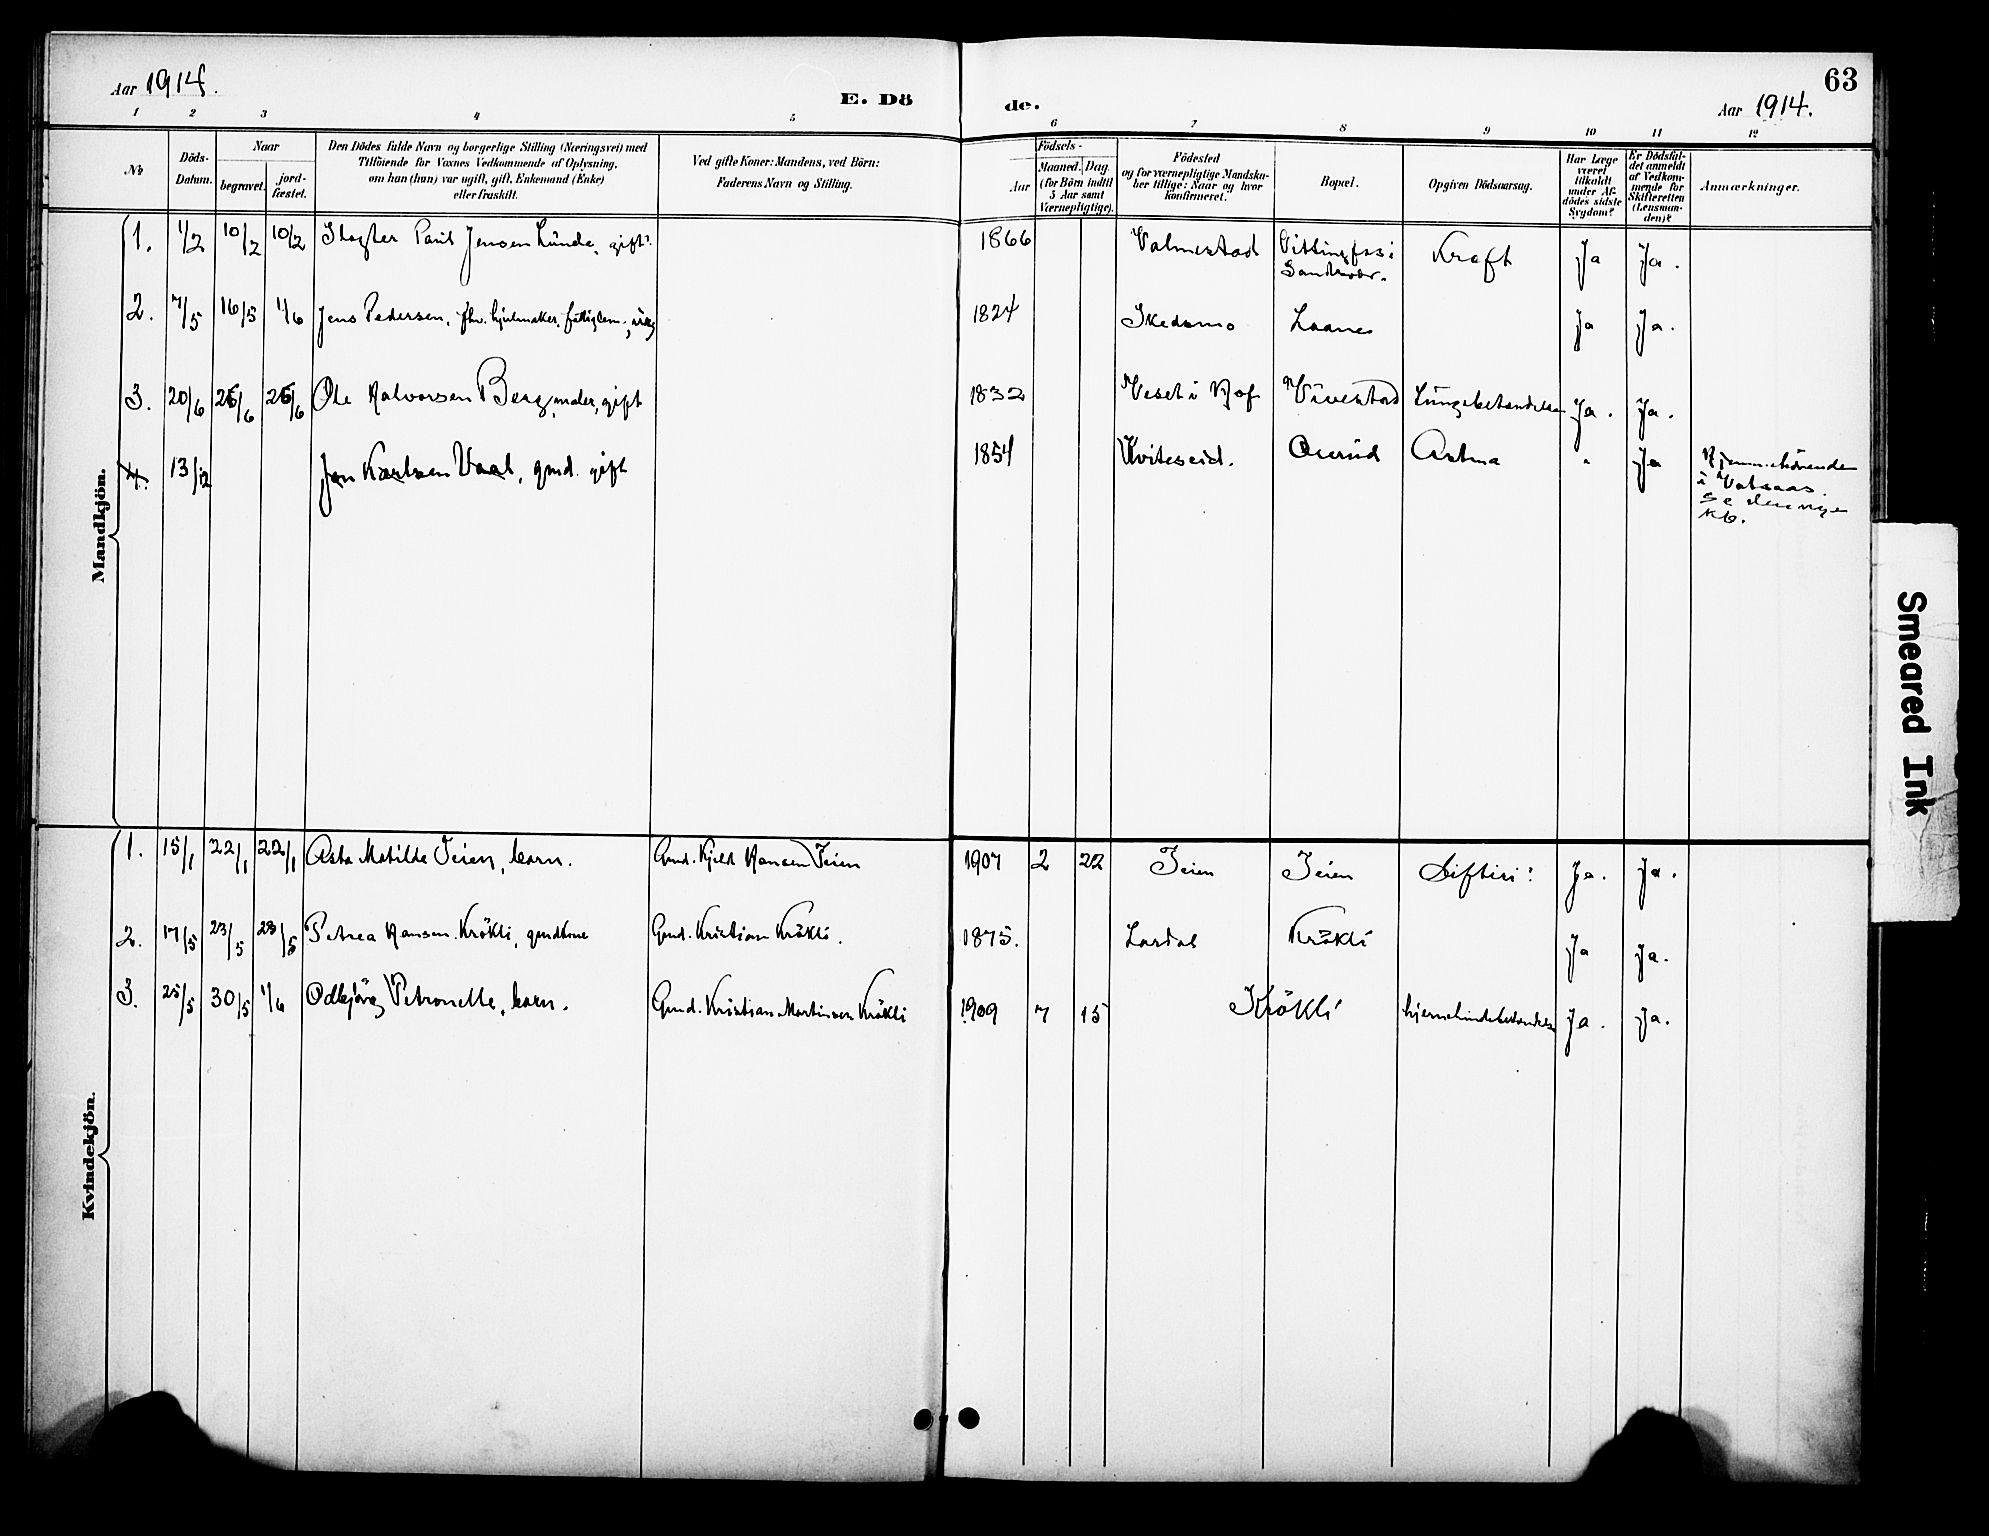 Aar 1914.
E. Dö
de.
Aar 1914.
63
1 2 3 4 5 6 7 8 9 10 11 12
No
Döds-
Datum.
Naar
begravet.
jord-
fæstet.
Den Dödes fulde Navn og borgerlige Stilling (Næringsvei) med
Tilföiende for Voxnes Vedkommende af Oplysning,
om han (hun) var ugift, gift, Enkemand (Enke)
eller fraskilt.
Ved gifte Koner: Mandens, ved Börn:
Faderens Navn og Stilling.
Födsels-
Aar
Maaned. Dag.
(for Börn indtil
5 Aar samt
Værnepligtige).
Födested
og for værnepligtige Mandska-
ber tillige: Naar og hvor
konfirmeret.
Bopæl.
Opgiven Dödsaarsag.
Har Læge
været
tilkaldt
under Af-
dödes sidste
Sygdom?
Er Dödsfal-
det anmeldt
af Vedkom-
mende for
Skifteretten
(Lensman-
den)?
Anmærkninger.
Mandkjön.
1. 1/2 10/2 10/2 Slagter Paul Jensen Lunde, gift. 1866 Valmestad Vittingfos i Sandsvær. Kræft Ja Ja.
2. 7/5 16/5 1/6 Jens Pedersen, fhv. hjulmaker, fattiglem, 1824 Skedsmo Laane Ja Ja.
3. 20/6 26/6 26/6 Ole Halvorsen Berg, maler, gift 1832 Vivestad Lungebetændelse Ja. Ja.
4. 13/12 Jon Karlsen gmd. gift 1854 Kviteseid. Astma " Ja Hjemmehörende
i
Kb.
Kvindekjön.
1. 15/1 22/1 22/1 Asta Matilde Teien, barn. Gmd. Kjeld Hansen Teien 1907 2 22 Teien Teien Difteri: Ja. Ja.
2. 17/5 23/5 23/5 Petrea Hansen Krökli, gmdkone Gmd. Kristian Krökli. 1875. Lardal Krökli Ja Ja.
3. 25/5 30/5 1/6 Odbjörg Petronelle, barn. Gmd. Kristian Martinsen Krökli 1909 7 15 Krökli hjernehindebetændelse Ja. Ja.
Smeared Ink